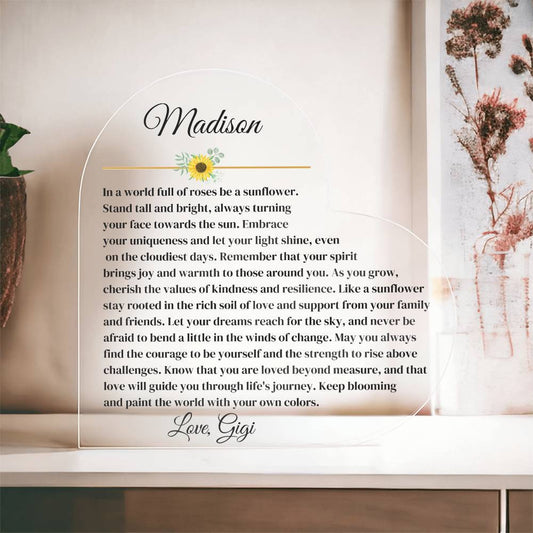 Madison
In a world full of roses be a sunflower.
Stand tall and bright, always turning
your face towards the sun. Embrace
your uniqueness and let your light shine, even
on the cloudiest days. Remember that your spirit
brings joy and warmth to those around you. As you grow,
cherish the values of kindness and resilience. Like a sunflower
stay rooted in the rich soil of love and support from your family
and friends. Let your dreams reach for the sky, and never be
afraid to bend a little in the winds of change. May you always
find the courage to be yourself and the strength to rise above
challenges. Know that you are loved beyond measure, and that
love will guide you through life's journey. Keep blooming
and paint the world with your own colors.
Love, Gigi